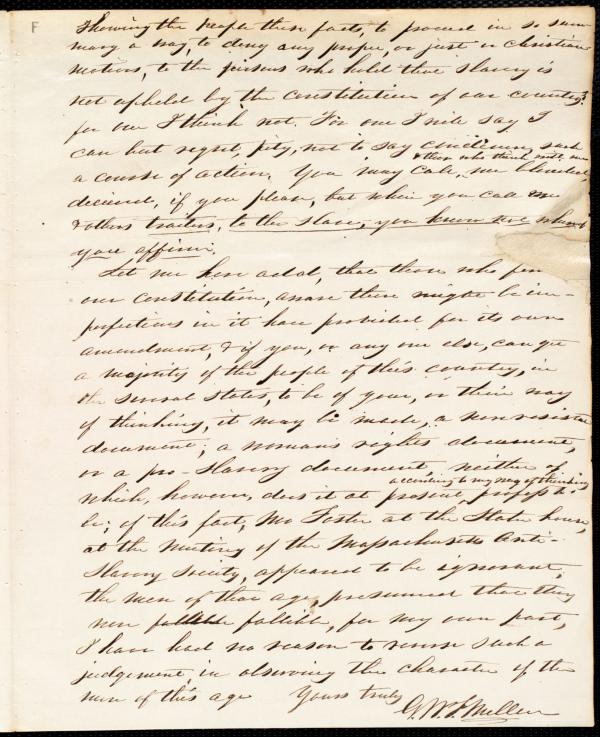 F
showing the people these facts, to proceed in so sum-
mary a way, to deny any proper, or just or christian
motives, to the persons who hold that slavery is
not upheld by the constitution of our country?
for one I think not. For one I will say I
can but regret, pity, not to say condemn such
a course of action. You may call me
& those who think with me
blinded,
deceived, if you please, but when you call me
& others traitors, to the slave, you know not what
you affirm.
Let me here add, that those who
our constitution, aware there might be im-
perfections in it have provided for its own
amendment, & if you, or any one else, can get
a majority of the people of this country, in
the several states, to be of your, or their way
of thinking, it may be made, a non resistan
document; a woman's rights document,
or a pro-slavery document, neither of
according to my way of thinking
which, however, does it at present, profess to
be; of this fact, Mr Foster at the State house,
at the meeting of the Massachusetts Anti-
Slavery Society, appeared to be ignorant,
the men of that age, presumed that they
were fallible, for my own part,
I have had no reason to reverse such a
judgement, in observing the character of the
men of this age Yours truly
G. W. F. Mellen